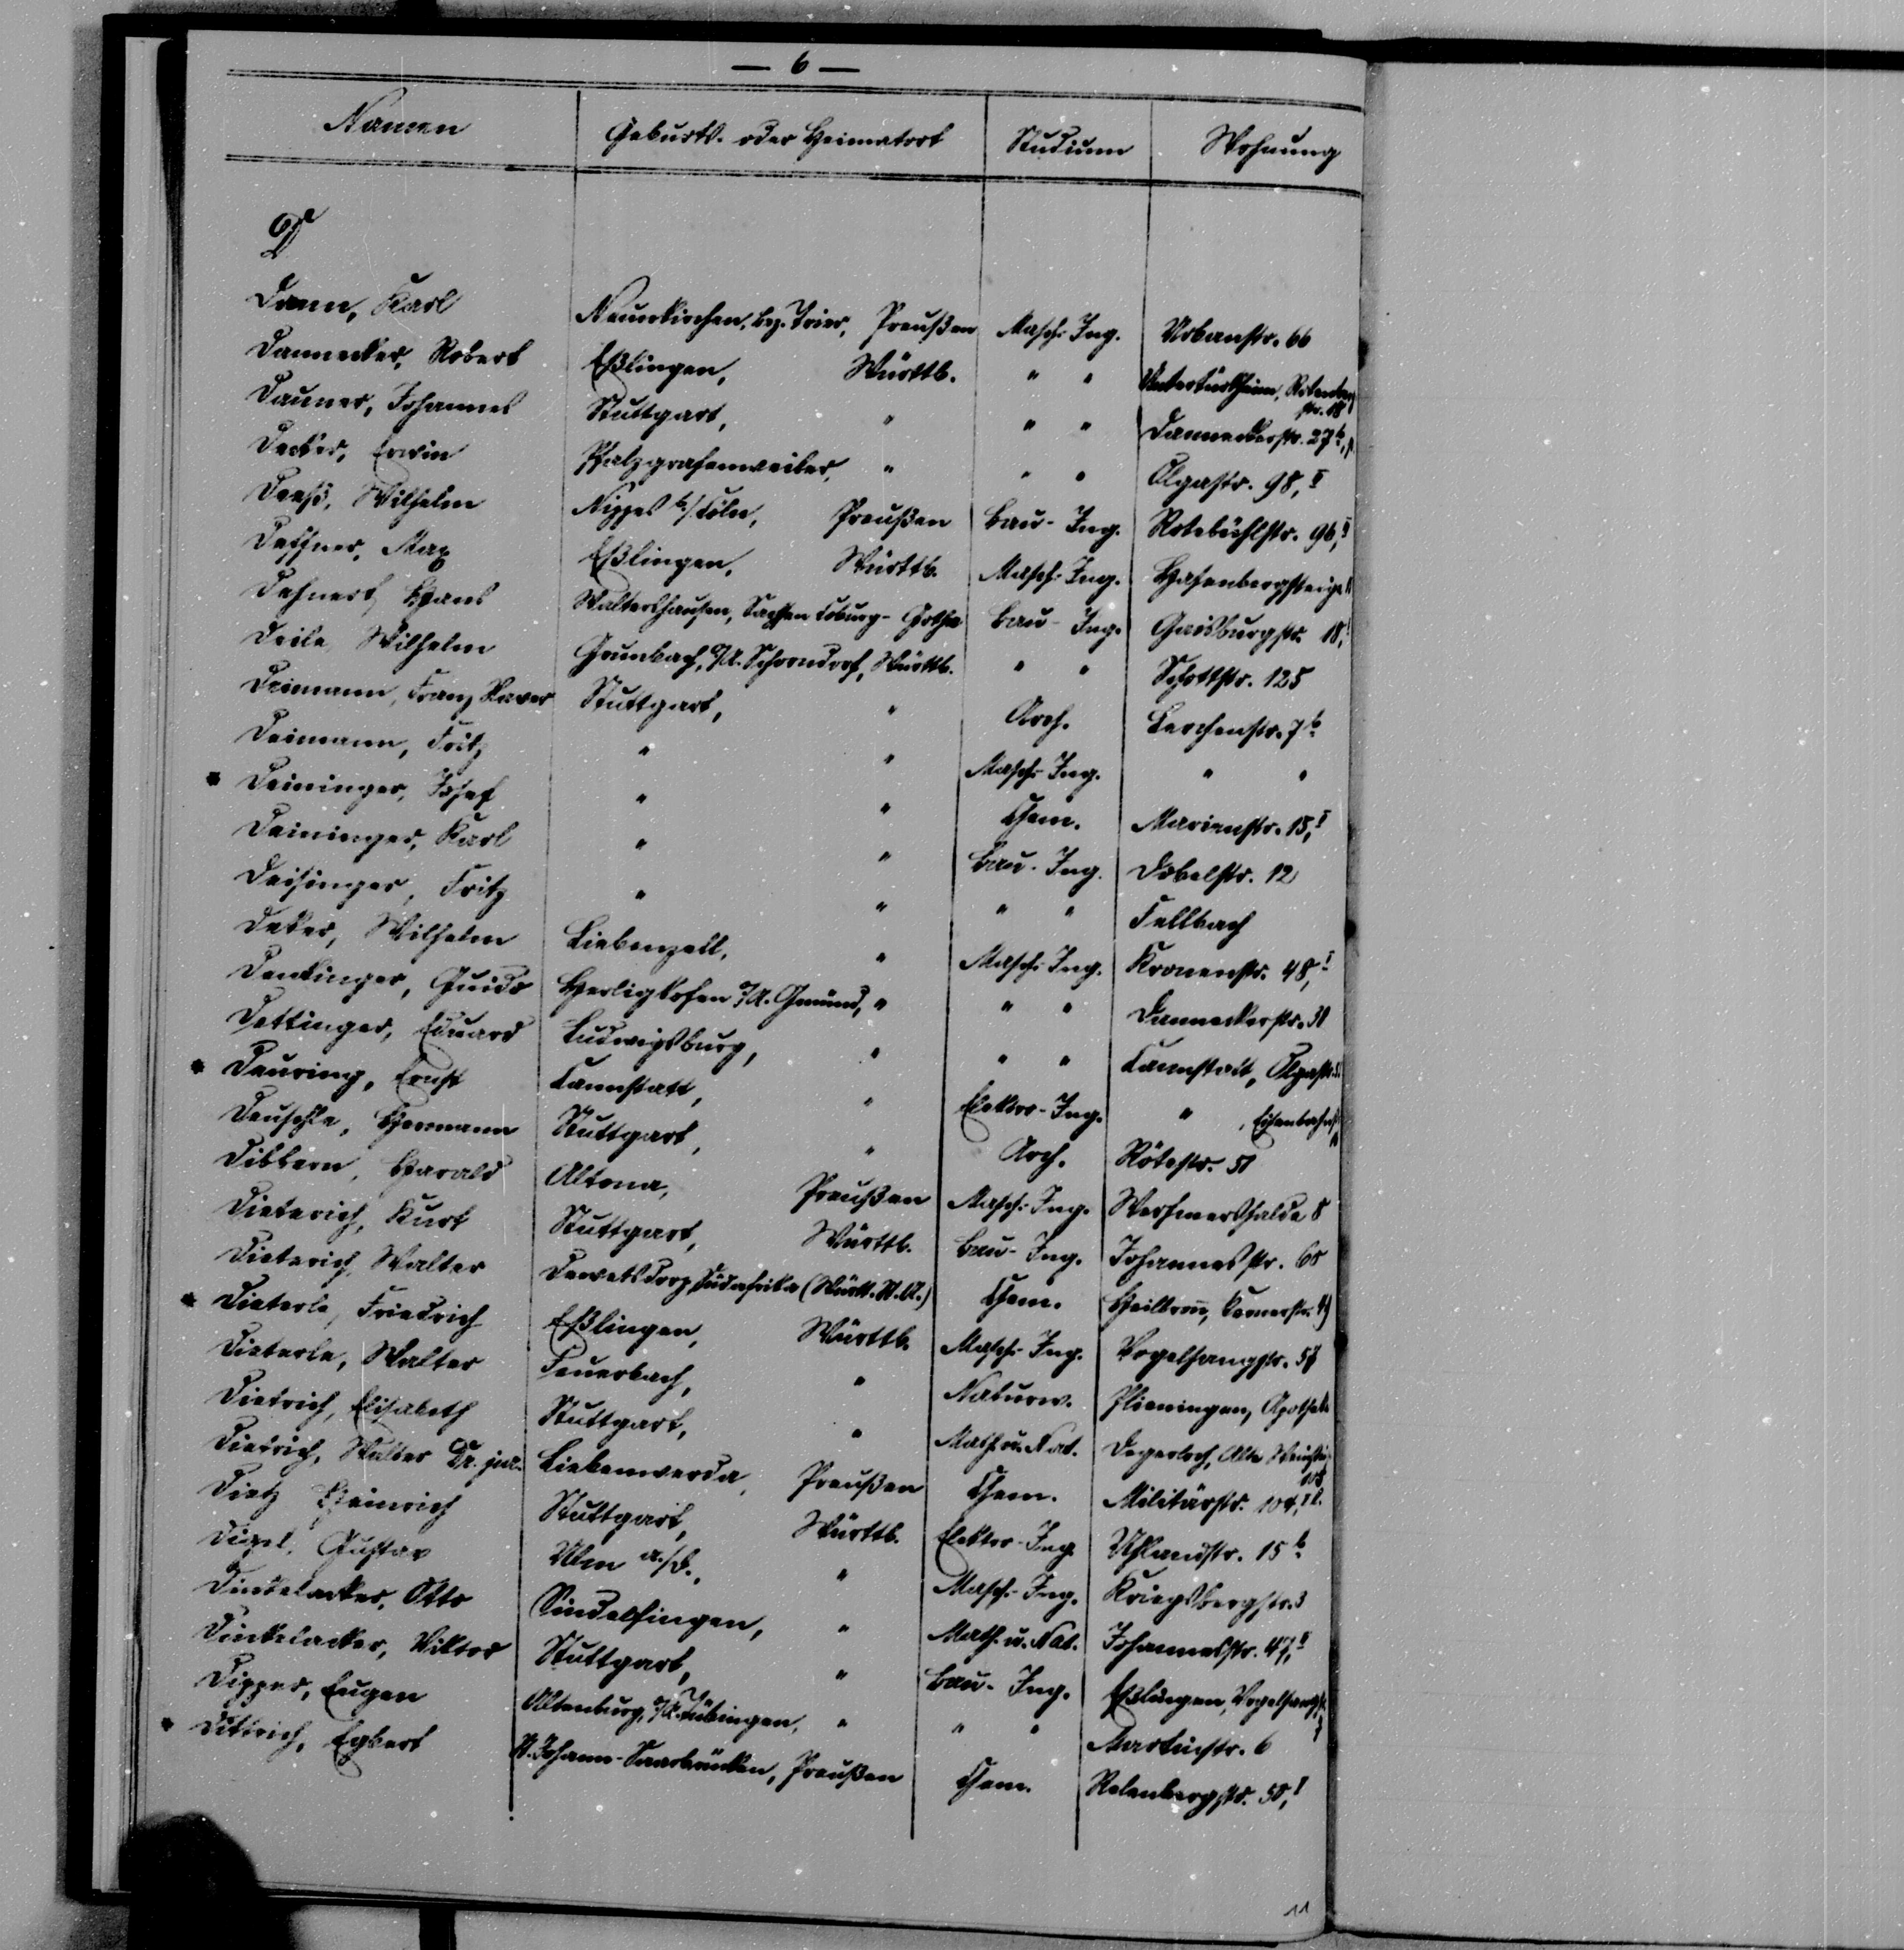 — 6 —
Namen Geburts- oder Heimatort Studium Wohnung
D
Dann, Karl Neunkirchen, Bez. Trier, Preußen Masch.-Ing. Urbanstr. 66
Dannecker, Robert Eßlingen, Württb. " " Untertürkheim, Rotenberg
str. 18
Dauner, Johannes Stuttgart, " " " Danneckerstr. 27b,
Decker, Erwin Pfalzgrafenweiler, " " " Olgastr. 98, II
Deeß, Wilhelm Nippes b/Cöln, Preußen Bau-Ing. Rotebühlstr. 96, II
Deffner, Max Eßlingen, Württb. Masch.-Ing. Hasenbergsteige
Dehnert, Hans Waltershausen, Sachsen Coburg-Gotha Bau-Ing. Gaisburgstr. 18, I
Deile, Wilhelm Grunbach, O/A. Schorndorf, Württb. " " Schottstr. 125
Deimann, Franz Xaver Stuttgart, " Arch. Lerchenstr. 7b
Deimann, Fritz " " Masch.-Ing. " "
* Deininger, Josef " " Chem. Marienstr. 15, I
Deininger, Karl " " Bau-Ing. Dobelstr. 12
Deisinger, Fritz " " " " Fellbach
Deker, Wilhelm Liebenzell, " Masch.-Ing. Kronenstr. 48, I
Denkinger, Guido Herligkofen O/A. Gmünd, " " " Danneckerstr. 31
Dettinger, Eduard Ludwigsburg, " " " Cannstatt, Olgastr.
* Deuring, Ernst Cannstatt, " Elektro-Ing. " , Eisenbahnst
Deuschle, Hermann Stuttgart, " Arch. Rötestr. 51
Dibbern, Harald Altona, Preußen Masch.-Ing. Wersmershalde 8
Dieterich, Kurt Stuttgart, Württb. Bau-Ing. Johannesstr. 60
Dieterich, Walter Dewetsdorp, Südafrika (Württ. St. A.) Chem. Heilbronn, Kernerstr. 41
* Dieterle, Friedrich Eßlingen, Württb. Masch.-Ing. Vogelsangstr. 57
Dieterle, Walter Feuerbach, " Naturw. Plieningen, Apotheke
Dietrich, Elisabeth Stuttgart, " Math. u. Nat. Degerloch, Alte Weinstei
105
Dietrich, Walter Dr. jur. Liebenwerda, Preußen Chem. Militärstr. 104, II.
Dietz Heinrich Stuttgart, Württb. Elektro-Ing. Uhlandstr. 15b
Digel, Gustav Ulm a./D., " Masch.-Ing. Kriegsbergstr. 3
Dinkelacker, Otto Sindelfingen, " Math. u. Nat. Johannesstr. 47, II
Dinkelacker, Viktor Stuttgart, " Bau-Ing. Eßlingen, Vogelsangstr.
Dipper, Eugen Altenburg, O/A. Tübingen, " " " Martinstr. 6
* Dittrich, Egbert St. Johann-Saarbrücken, Preußen Chem. Relenbergstr. 50, I
11